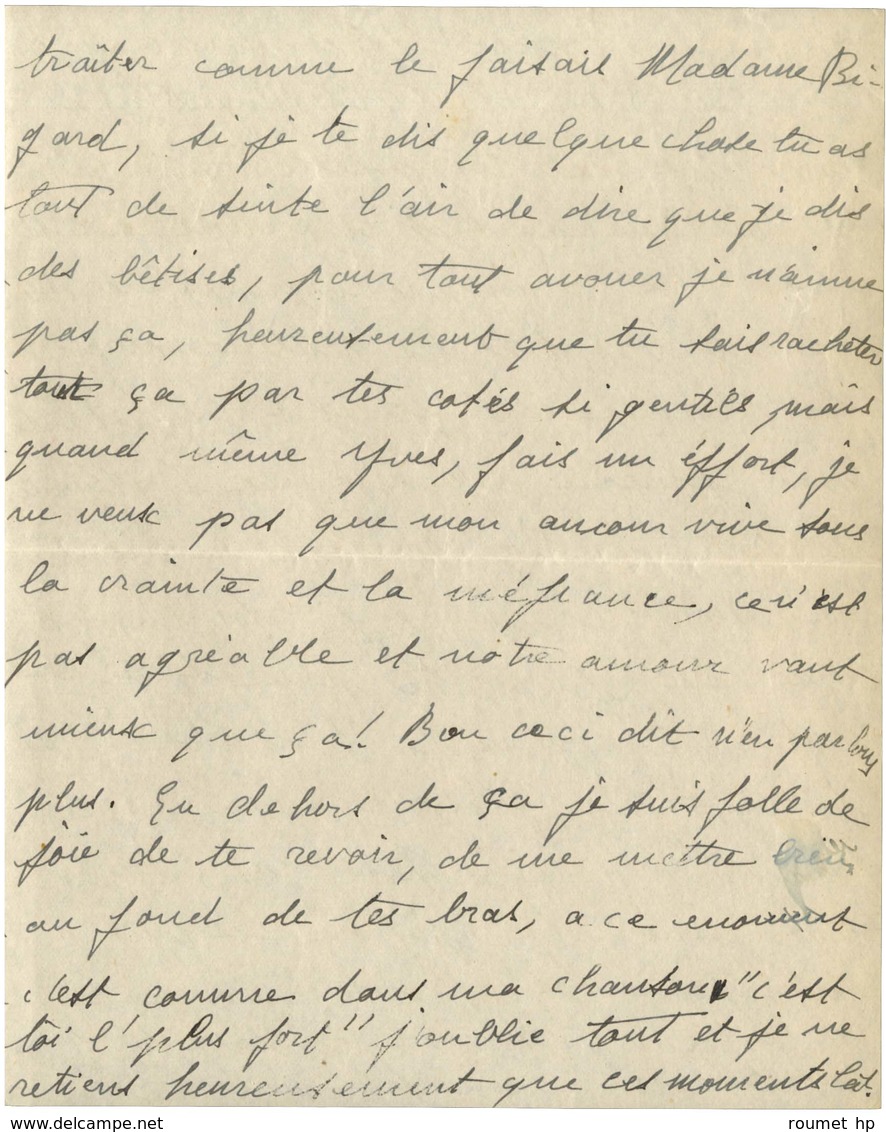 traîter comme le faisais Madame Bi-
gard, si je te dis quelque chose tu as
tout de suite l'air de dire que je dis
des bêtises, pour tout avouer je n'aime
pas ça, heureusement que tu sais racheter
tout ça par tes cotés si gentils mais
quand même Yves, fais un éffort, je
ne veux pas que mon amour vive sous
la crainte et la méfiance, ce n'est
pas agréable et notre amour vaut
mieux que ça! Bon ceci dît n'en parlons
plus. En dehors de ça je suis folle de
joie de te revoir, de me mettre bien
au fond de tes bras, a ce moment
c'est comme dans ma chanson "c'est
toi l'plus fort" j'oublie tout et je ne
retiens heureusement que ces moments lât.
roumet hp